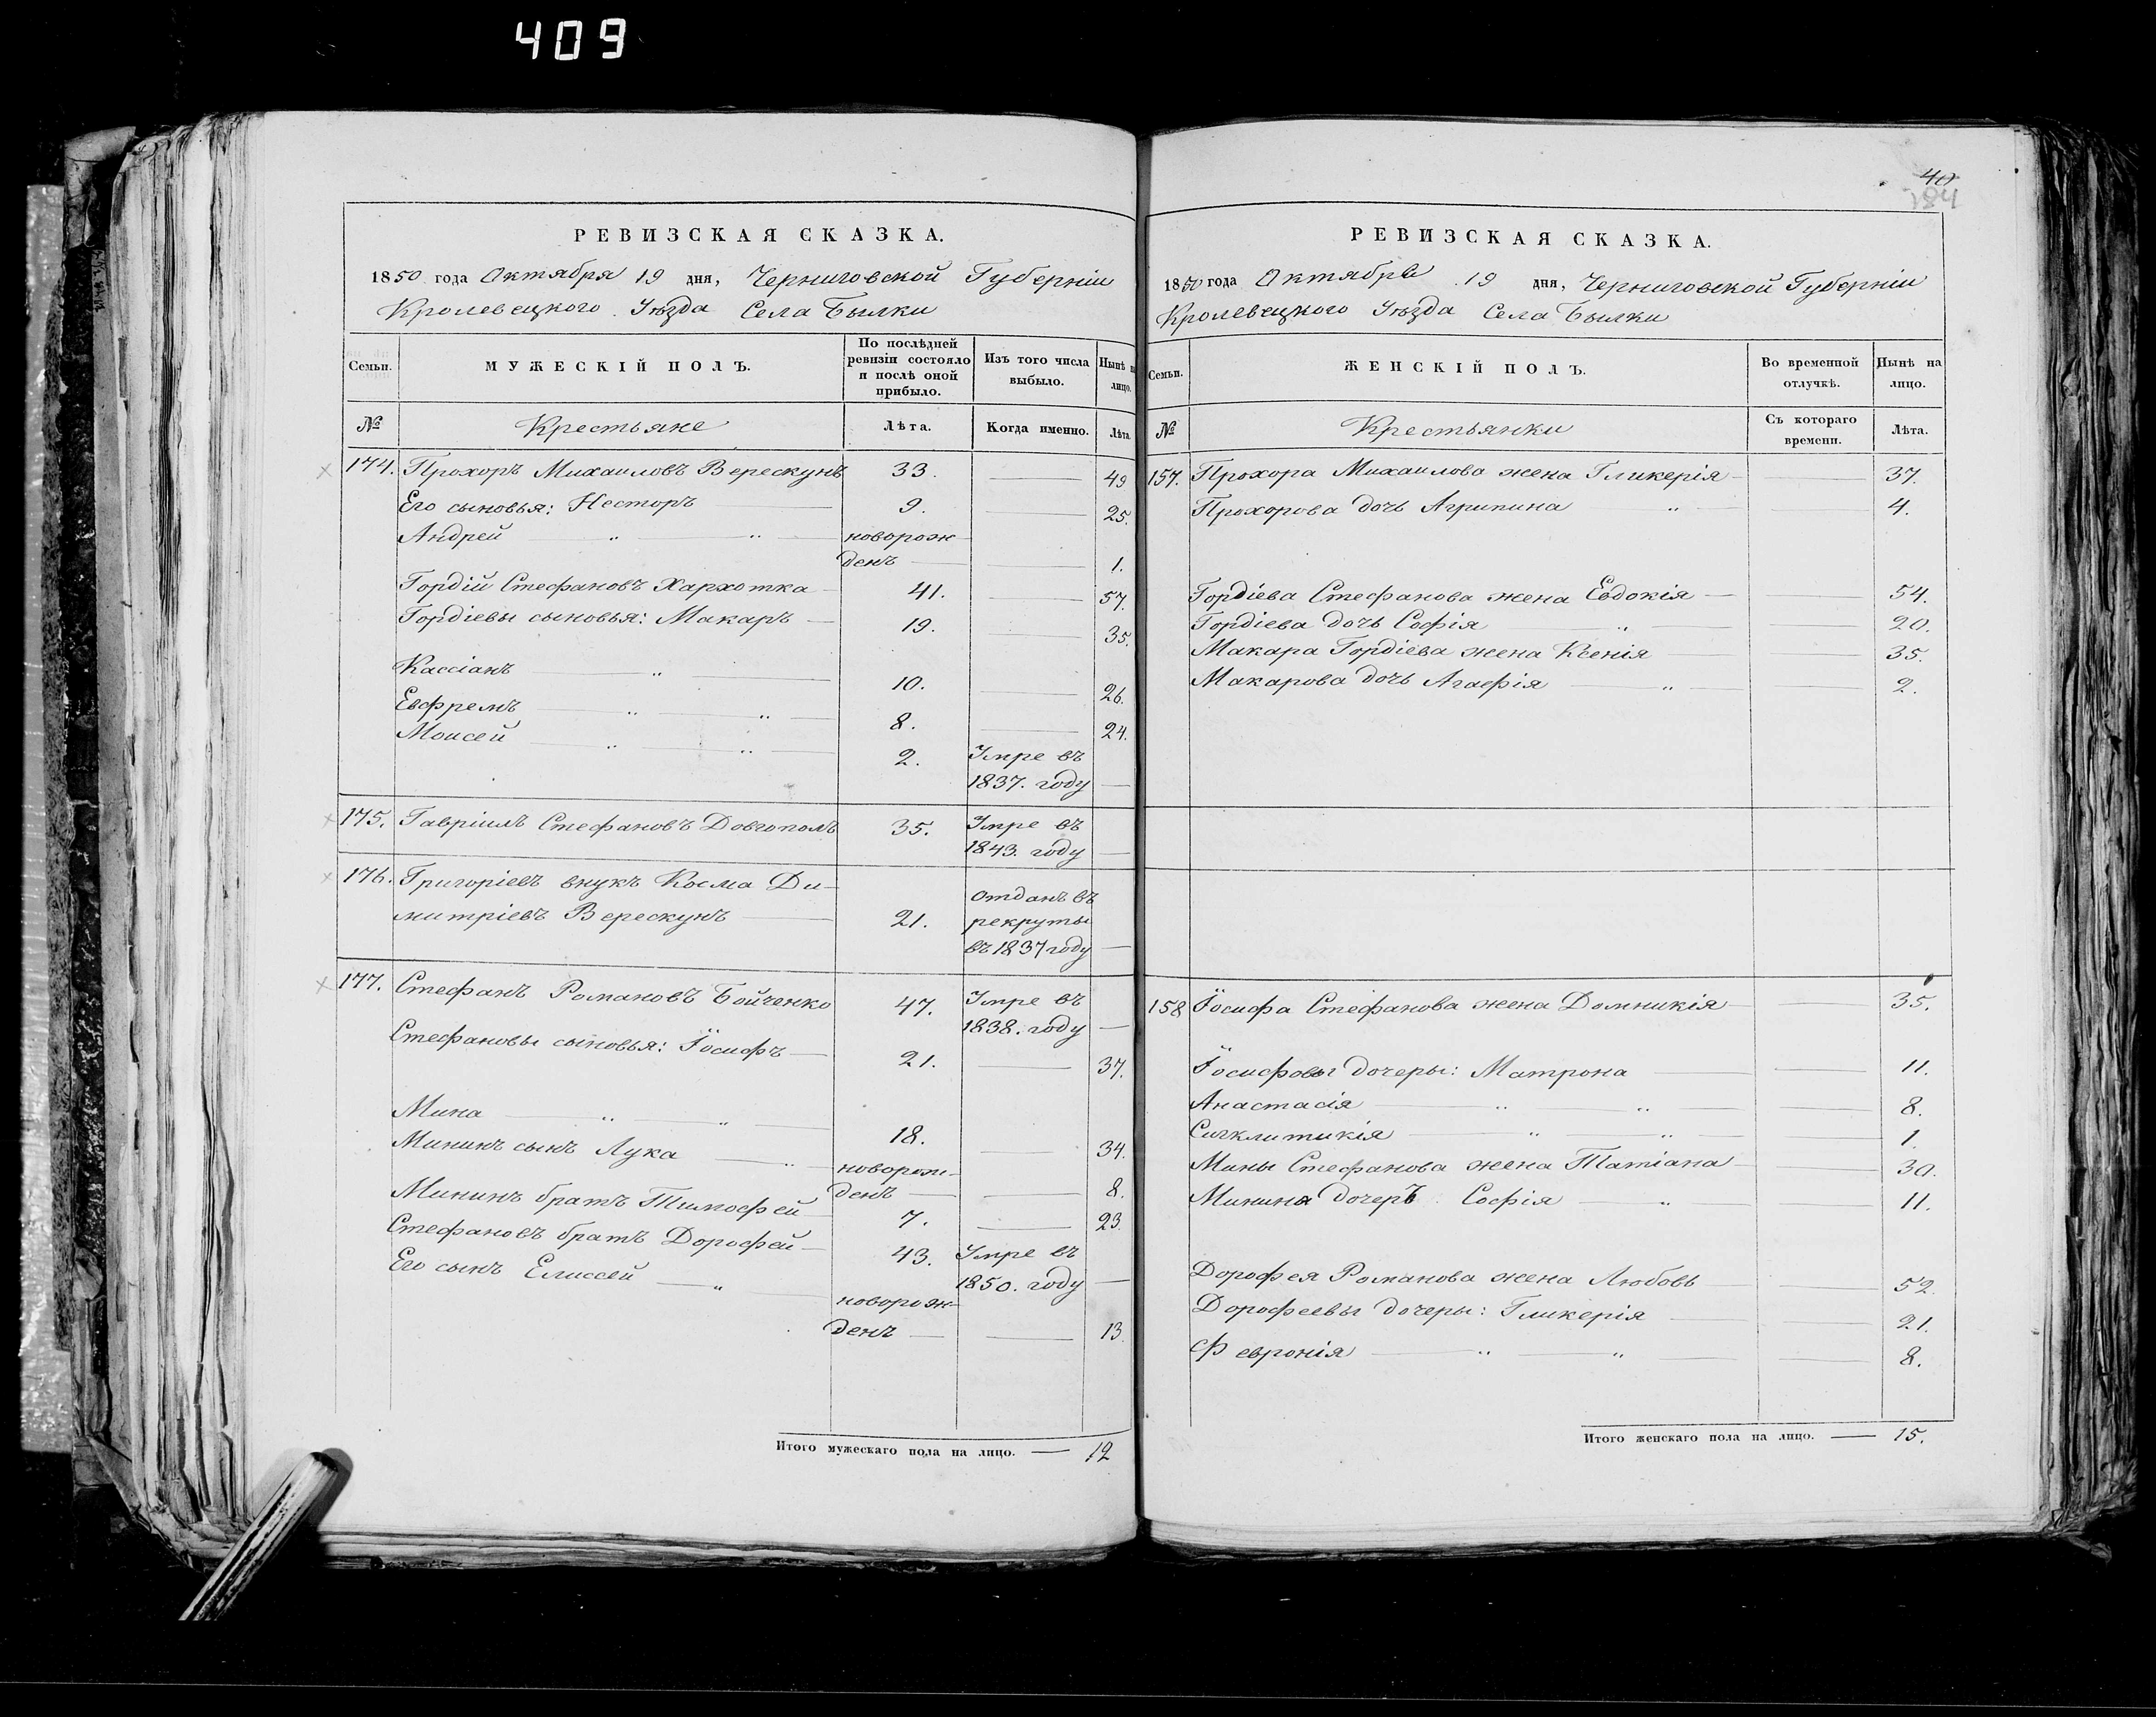 409
РЕВИЗСКАЯ СКАЗКА.
1850 года Октября 19 дня, Черниговской Губерніи
Кролевецкого Уѣзда Села Былки
Семьи.
МУЖЕСКІЙ ПОЛЪ.
По послѣдней
ревизіи состояло
и послѣ оной
прибыло.
Изъ того числа
выбыло.
Нынѣ н
лицо.
№ Крестьяне Лѣта. Когда именно. Лѣта
174. Прохоръ Михаиловъ Верескунъ 33. 49
Его сыновья: Несторъ 9. 25.
Андрей " " новорож
денъ 1.
Гордій Стефановъ Хархотка 41. 57.
Гордіевы сыновья: Макаръ 19. 35.
Кассіанъ " 10. 26.
Евфремъ " " 8. 24.
Моисей " " 2. Умре въ
1837. году
175. Гавріилъ Стефановъ Довгополъ 35. Умре въ
1843. году
176. Григоріевъ внукъ Косма Ди-
митріевъ Верескунъ 21. отданъ въ
рекруты
въ 1837 году
177. Стефанъ Романовъ Бойченко 47. Умре въ
1838. году
Стефановы сыновья: Іосифъ 21. 37.
Мина " " 18. 34.
Мининъ сынъ Лука " новорож-
денъ 8.
Мининъ братъ Тимофей 7. 23.
Стефановъ братъ Дорофей 43. Умре въ
1850. году
Его сынъ Елиссей " новорож-
денъ 13.
Итого мужескаго пола на лицо. — 12
40
184
РЕВИЗСКАЯ СКАЗКА.
1850 года Октября 19 дня, Черниговской Губерніи
Кролевецкого Уѣзда Села Былки
Семьи.
ЖЕНСКІЙ ПОЛЪ.
Во временной
отлучкѣ.
Нынѣ на
лицо.
№ Крестьянки
Съ котораго
времени.
Лѣта.
157. Прохора Михаилова жена Гликерія 37.
Прохорова дочь Агрипина " 4.
Гордіева Стефанова жена Евдокія 54.
Гордіева дочь Софія " 20.
Макара Гордіева жена Ксенія 35.
Макарова дочь Агафія " 2.
158 Іосифа Стефанова жена Домникія 35.
Іосифовы дочеры: Матрона 11.
Анастасія " " 8.
Сигклитикія " " 1.
Мины Стефанова жена Татіана 30.
Минина дочеръ Софія " 11.
Дорофея Романова жена Любовь 52.
Дорофеевы дочеры: Гликерія 21.
Февронія " " 8.
Итого женскаго пола на лицо. — 15.